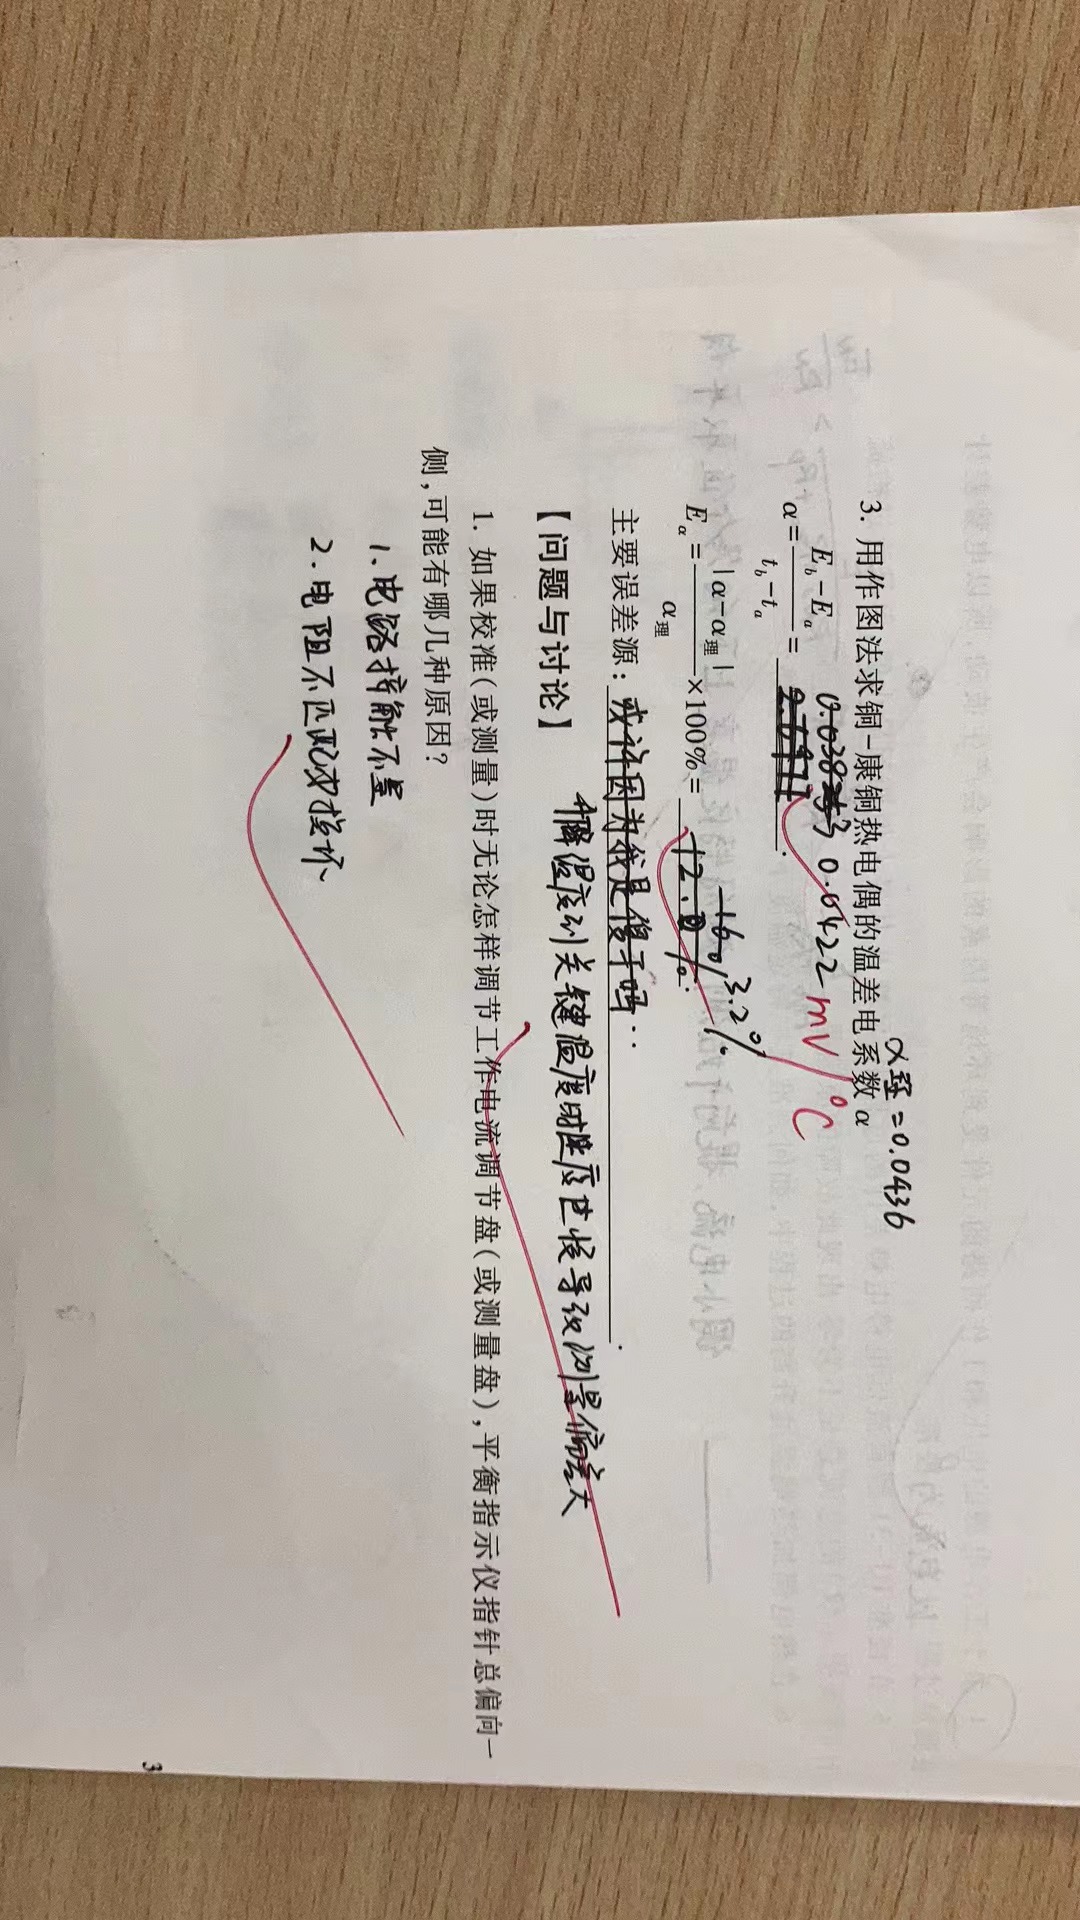 3. 用作图法求铜-康铜热电偶的温差电系数α
α理=0.0436
α=(E_b-E_a)/(t_b-t_a)= 0.0422 mV/℃
E_α=|α-α理|/α理×100%= 3.2%
主要误差源: 或许因为我是傻子吗…
【问题与讨论】
温度到关键温度时速度过慢导致测量偏差大
1. 如果校准(或测量)时无论怎样调节工作电流调节盘(或测量盘),平衡指示仪指针总偏向一
侧,可能有哪几种原因?
1. 电路接触不良
2. 电阻不匹配或损坏
3